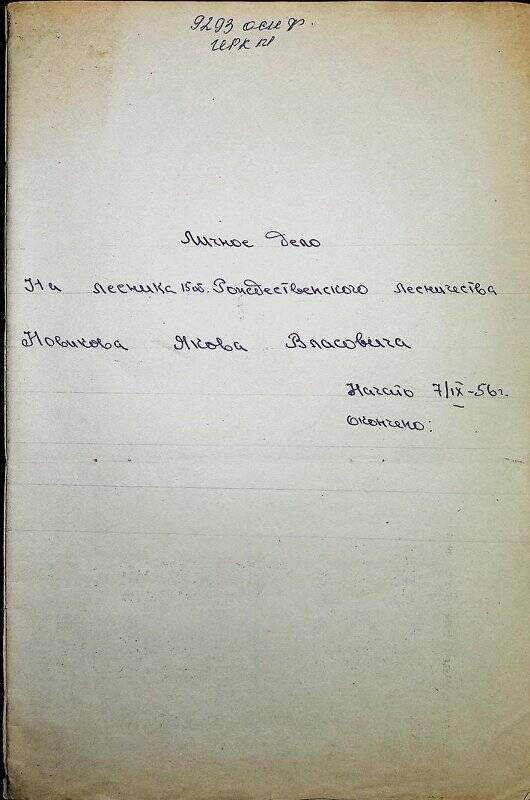 9293 осн ф.
Личное дело
На лесника 15 об. Рождественского лесничества
Новикова Якова Власовича
Начато 7/IX-56г.
окончено: